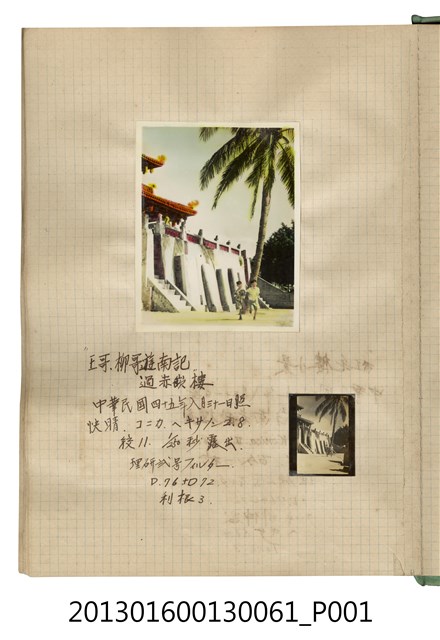 王哥.柳哥遊南記.
過赤崁樓
中華民國四十五年八月三十一日照
快晴. コニカ. ヘキサノン 2.8.
絞11. 秒露出.
理研 フィルター.
D.76+D72
利根3.
201301600130061_P001